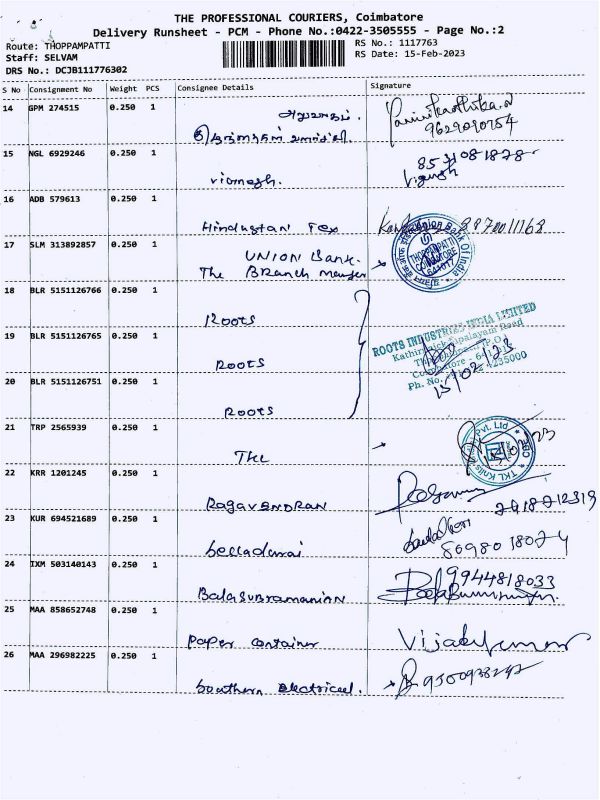 THE PROFESSIONAL COURIERS, Coimbatore
Delivery Runsheet - PCM - Phone No.:0422-3505555 - Page No.:2
Route: THOPPAMPATTI
RS No.: 1117763
Staff: SELVAM
RS Date: 15-Feb-2023
DRS No.: DCJB111776302
S No Consignment No Weight PCS Consignee Details Signature
14 GPM 274515 0.250 1
9629090754
15 NGL 6929246 0.250 1
8531081878
Vignesh
16 ADB 579613 0.250 1
Hindustan Tex 8870011768
17 SLM 313892857 0.250 1 UNION Bank.
The Branch Manager
Union Bank Of India
THOPPAMPATTI
COIMBATORE
641017
18 BLR 5151126766 0.250 1
Roots
19 BLR 5151126765 0.250 1
ROOTS
20 BLR 5151126751 0.250 1
ROOTS
ROOTS INDUSTRIES INDIA LIMITED
Coimbatore - 4235000
Ph. No.
15/02/23
21 TRP 2565939 0.250 1
TKL
TKL Knits Pvt. Ltd
22 KRR 1201245 0.250 1
RAGAVENDRAN
23 KUR 694521689 0.250 1
Selladurai
80980 18074
24 IXM 503140143 0.250 1
Balasubramanian
9944818033
25 MAA 858652748 0.250 1
Paper Container Vijaykumar
26 MAA 296982225 0.250 1
Southern Electrical.